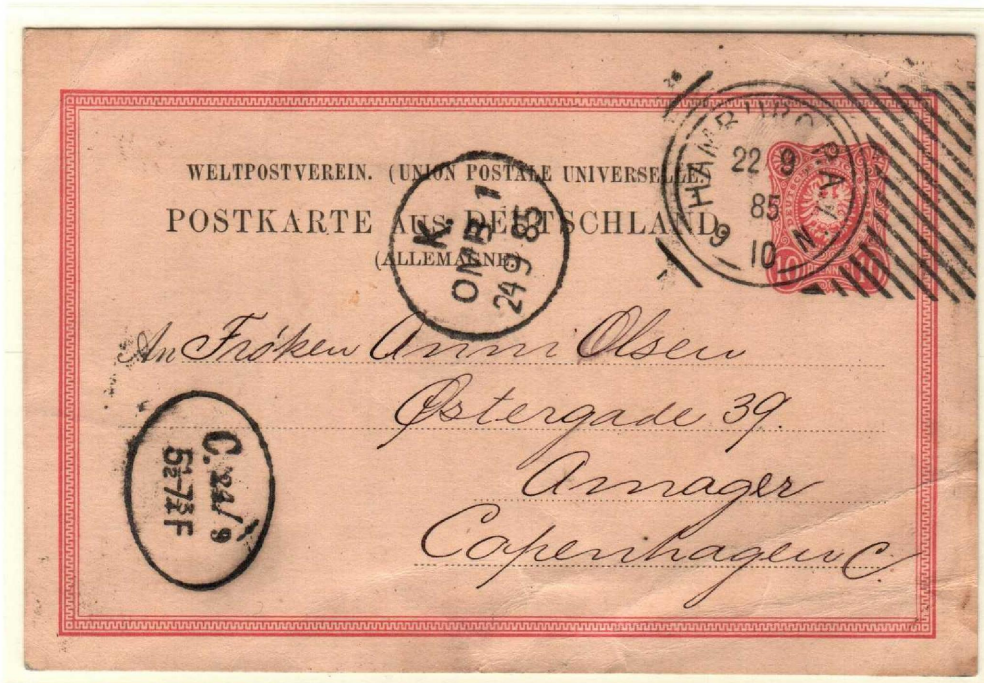 WELTPOSTVEREIN. (UNION POSTALE UNIVERSELLE)
POSTKARTE AUS DEUTSCHLAND
(ALLEMAGNE)
HAMBURG
22 9
85
9 10 N
10 PFENNIG 10
K.
OMB 1
24 9 85
An Frøken Anni Olsen
Østergade 39.
Amager
Copenhagen C.
C. 24/9
5½-7½ F